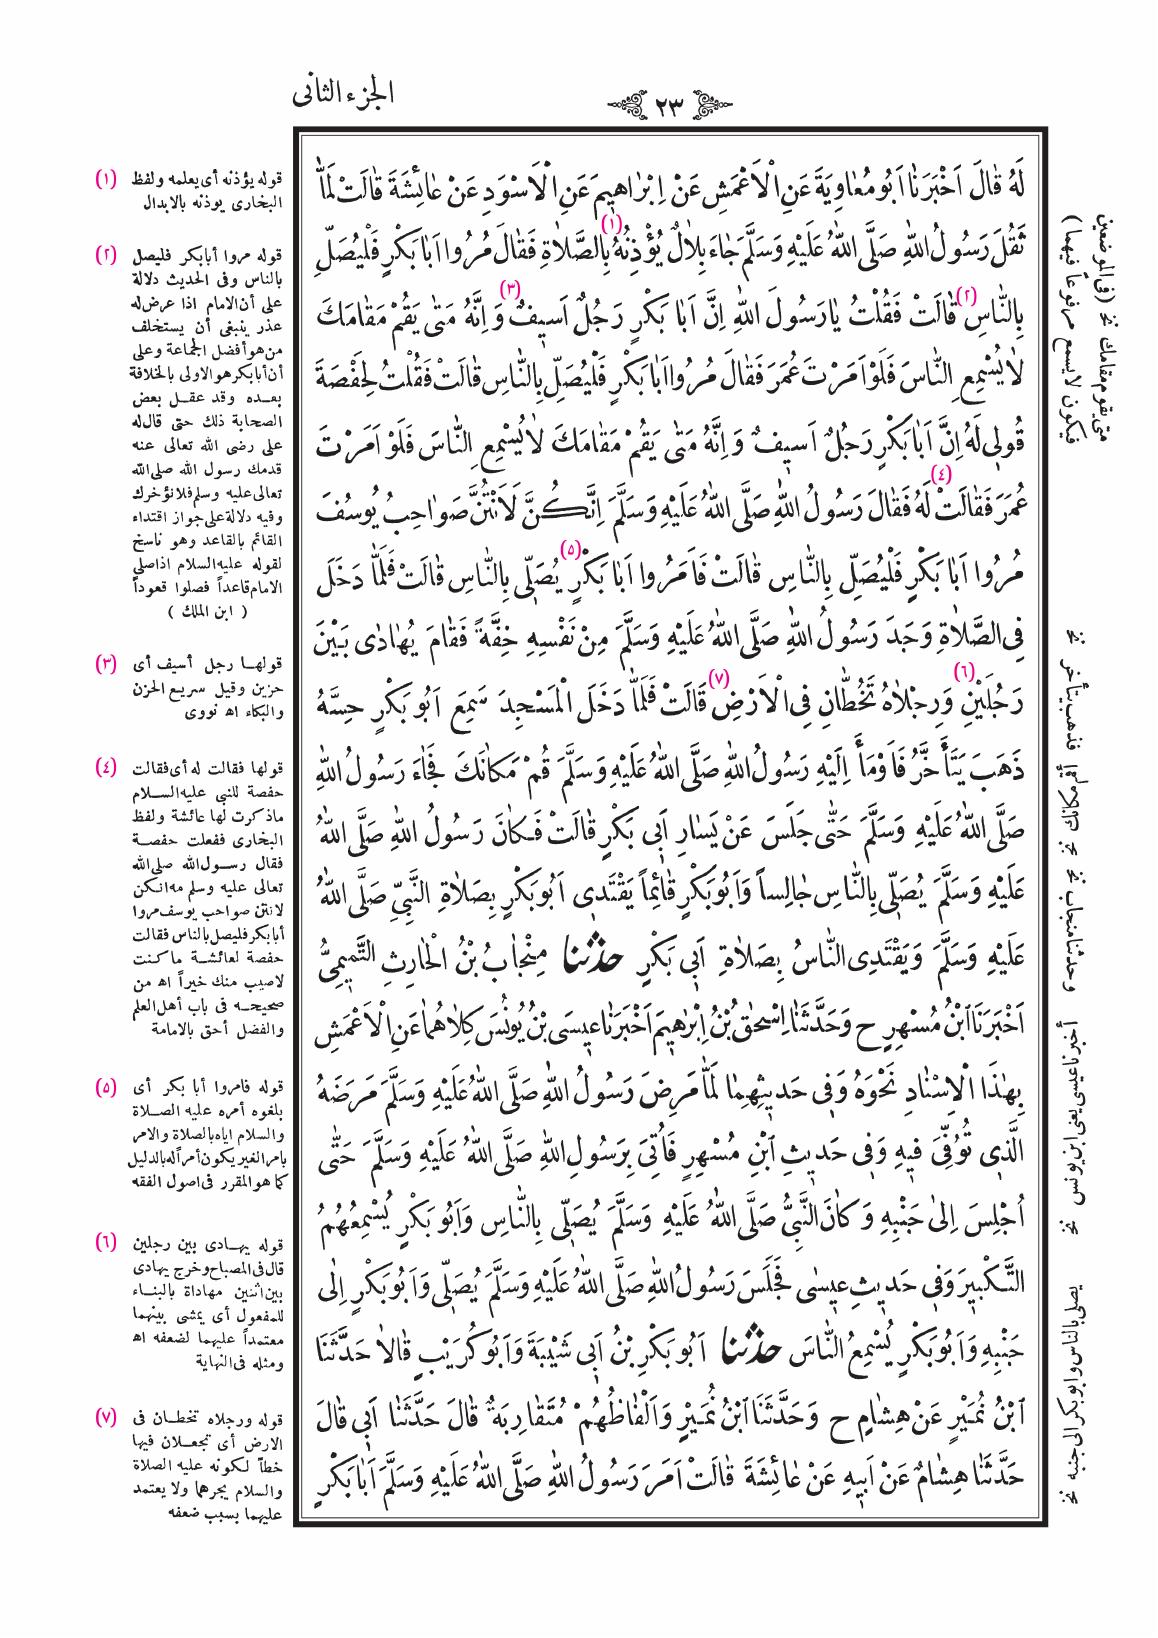 ٢٣
الجزء الثانى
لَهُ قَالَ اَخْبَرَنَا اَبُو مُعَاوِيَةَ عَنِ الْاَعْمَشِ عَنْ اِبْرَاهِيمَ عَنِ الْاَسْوَدِ عَنْ عَائِشَةَ قَالَتْ لَمَّا
ثَقُلَ رَسُولُ اللّٰهِ صَلَّى اللّٰهُ عَلَيْهِ وَسَلَّمَ جَاءَ بِلَالٌ يُؤْذِنُهُ (١) بِالصَّلَاةِ فَقَالَ مُرُوا اَبَا بَكْرٍ فَلْيُصَلِّ
بِالنَّاسِ (٢) قَالَتْ فَقُلْتُ يَا رَسُولَ اللّٰهِ اِنَّ اَبَا بَكْرٍ رَجُلٌ اَسِيفٌ (٣) وَ اِنَّهُ مَتٰى يَقُمْ مَقَامَكَ
لَا يُسْمِعِ النَّاسَ فَلَوْ اَمَرْتَ عُمَرَ فَقَالَ مُرُوا اَبَا بَكْرٍ فَلْيُصَلِّ بِالنَّاسِ قَالَتْ فَقُلْتُ لِحَفْصَةَ
قُولِى لَهُ اِنَّ اَبَا بَكْرٍ رَجُلٌ اَسِيفٌ وَ اِنَّهُ مَتٰى يَقُمْ مَقَامَكَ لَا يُسْمِعِ النَّاسَ فَلَوْ اَمَرْتَ
عُمَرَ فَقَالَتْ (٤) لَهُ فَقَالَ رَسُولُ اللّٰهِ صَلَّى اللّٰهُ عَلَيْهِ وَسَلَّمَ اِنَّكُنَّ لَاَنْتُنَّ صَوَاحِبُ يُوسُفَ
مُرُوا اَبَا بَكْرٍ فَلْيُصَلِّ بِالنَّاسِ قَالَتْ فَاَمَرُوا اَبَا بَكْرٍ (٥) يُصَلِّى بِالنَّاسِ قَالَتْ فَلَمَّا دَخَلَ
فِى الصَّلَاةِ وَجَدَ رَسُولُ اللّٰهِ صَلَّى اللّٰهُ عَلَيْهِ وَسَلَّمَ مِنْ نَفْسِهِ خِفَّةً فَقَامَ يُهَادٰى بَيْنَ
رَجُلَيْنِ (٦) وَرِجْلَاهُ تَخُطَّانِ فِى الْاَرْضِ (٧) قَالَتْ فَلَمَّا دَخَلَ الْمَسْجِدَ سَمِعَ اَبُو بَكْرٍ حِسَّهُ
ذَهَبَ يَتَأَخَّرُ فَاَوْمَأَ اِلَيْهِ رَسُولُ اللّٰهِ صَلَّى اللّٰهُ عَلَيْهِ وَسَلَّمَ قُمْ مَكَانَكَ فَجَاءَ رَسُولُ اللّٰهِ
صَلَّى اللّٰهُ عَلَيْهِ وَسَلَّمَ حَتّٰى جَلَسَ عَنْ يَسَارِ اَبِى بَكْرٍ قَالَتْ فَكَانَ رَسُولُ اللّٰهِ صَلَّى اللّٰهُ
عَلَيْهِ وَسَلَّمَ يُصَلِّى بِالنَّاسِ جَالِساً وَاَبُو بَكْرٍ قَائِماً يَقْتَدِى اَبُو بَكْرٍ بِصَلَاةِ النَّبِىِّ صَلَّى اللّٰهُ
عَلَيْهِ وَسَلَّمَ وَيَقْتَدِى النَّاسُ بِصَلَاةِ اَبِى بَكْرٍ حدثنا مِنْجَابُ بْنُ الْحَارِثِ التَّمِيمِىُّ
اَخْبَرَنَا ابْنُ مُسْهِرٍ ح وَحَدَّثَنَا اِسْحٰقُ بْنُ اِبْرٰهِيمَ اَخْبَرَنَا عِيسَى بْنُ يُونُسَ كِلَاهُمَا عَنِ الْاَعْمَشِ
بِهٰذَا الْاِسْنَادِ نَحْوَهُ وَفِى حَدِيثِهِمَا لَمَّا مَرِضَ رَسُولُ اللّٰهِ صَلَّى اللّٰهُ عَلَيْهِ وَسَلَّمَ مَرَضَهُ
الَّذِى تُوُفِّىَ فِيهِ وَفِى حَدِيثِ ابْنِ مُسْهِرٍ فَاُتِىَ بِرَسُولِ اللّٰهِ صَلَّى اللّٰهُ عَلَيْهِ وَسَلَّمَ حَتّٰى
اُجْلِسَ اِلٰى جَنْبِهِ وَكَانَ النَّبِىُّ صَلَّى اللّٰهُ عَلَيْهِ وَسَلَّمَ يُصَلِّى بِالنَّاسِ وَاَبُو بَكْرٍ يُسْمِعُهُمُ
التَّكْبِيرَ وَفِى حَدِيثِ عِيسٰى فَجَلَسَ رَسُولُ اللّٰهِ صَلَّى اللّٰهُ عَلَيْهِ وَسَلَّمَ يُصَلِّى وَاَبُو بَكْرٍ اِلٰى
جَنْبِهِ وَاَبُو بَكْرٍ يُسْمِعُ النَّاسَ حدثنا اَبُو بَكْرِ بْنُ اَبِى شَيْبَةَ وَاَبُو كُرَيْبٍ قَالَا حَدَّثَنَا
ابْنُ نُمَيْرٍ عَنْ هِشَامٍ ح وَحَدَّثَنَا ابْنُ نُمَيْرٍ وَاَلْفَاظُهُمْ مُتَقَارِبَةٌ قَالَ حَدَّثَنَا اَبِى قَالَ
حَدَّثَنَا هِشَامٌ عَنْ اَبِيهِ عَنْ عَائِشَةَ قَالَتْ اَمَرَ رَسُولُ اللّٰهِ صَلَّى اللّٰهُ عَلَيْهِ وَسَلَّمَ اَبَا بَكْرٍ
متى يقوم مقامك نخ (فى الموضعين
فيكون لا يسمع مرفوعاً فيهما)
فذهب يتأخر نخ
أقم مكانك نخ
وحدثنا منجاب نخ
أخبرنا عيسى يعنى ابن يونس نخ
يصلى بالناس وابو بكر الى جنبه نخ
(١) قوله يؤذنه أى يعلمه ولفظ
البخارى يوذنه بالابدال
(٢) قوله مروا أبابكر فليصل
بالناس وفى الحديث دلالة
على أن الامام اذا عرض له
عذر ينبغى أن يستخلف
من هو أفضل الجماعة وعلى
أن أبابكر هو الاولى بالخلافة
بعده وقد عقل بعض
الصحابة ذلك حتى قال له
على رضى الله تعالى عنه
قدمك رسول الله صلى الله
تعالى عليه وسلم فلا نؤخرك
وفيه دلالة على جواز اقتداء
القائم بالقاعد وهو ناسخ
لقوله عليه السلام اذا صلى
الامام قاعداً فصلوا قعوداً
( ابن الملك )
(٣) قولها رجل أسيف أى
حزين وقيل سريع الحزن
والبكاء اه نووى
(٤) قولها فقالت له أى فقالت
حفصة للنبى عليه السلام
ماذكرت لها عائشة ولفظ
البخارى ففعلت حفصة
فقال رسول الله صلى الله
تعالى عليه وسلم مه انكن
لانتن صواحب يوسف مروا
أبابكر فليصل بالناس فقالت
حفصة لعائشة ما كنت
لاصيب منك خيراً اه من
صحيحه فى باب أهل العلم
والفضل أحق بالامامة
(٥) قوله فامروا أبا بكر أى
بلغوه أمره عليه الصلاة
والسلام اياه بالصلاة والامر
بامر الغير يكون أمراً له بالدليل
كما هو المقرر فى اصول الفقه
(٦) قوله يهادى بين رجلين
قال فى المصباح وخرج يهادى
بين اثنين مهاداة بالبناء
للمفعول أى يمشى بينهما
معتمداً عليهما لضعفه اه
ومثله فى النهاية
(٧) قوله ورجلاه تخطان فى
الارض أى تجعلان فيها
خطاً لكونه عليه الصلاة
والسلام يجرهما ولا يعتمد
عليهما بسبب ضعفه